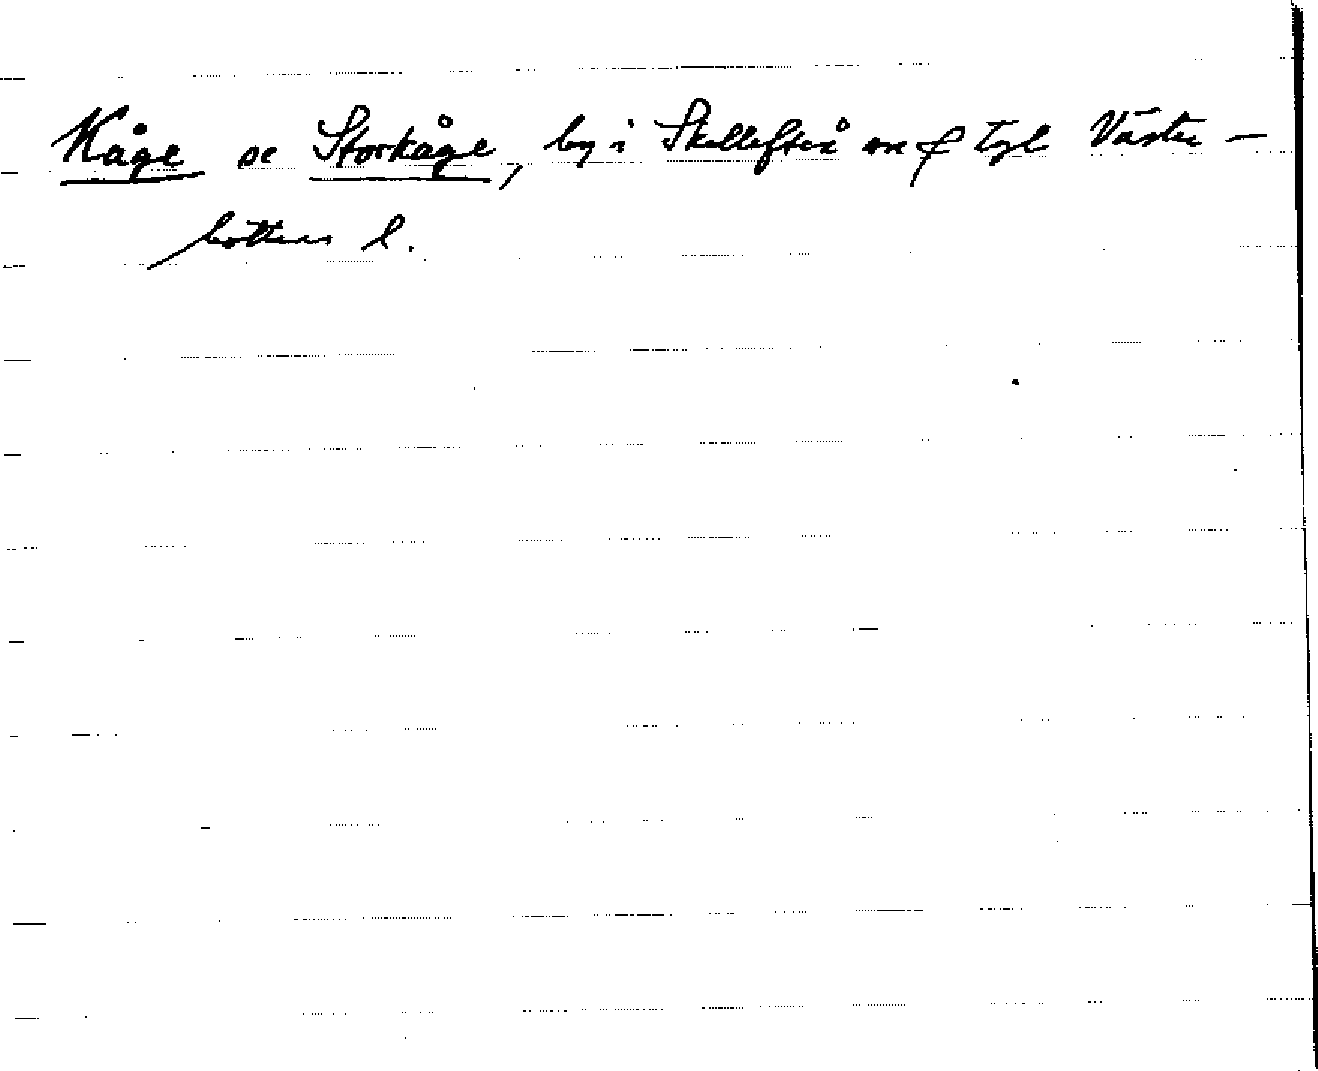 Kåge se Storkåge, by i Skellefteå sn o tgl Väster-
bottens l.